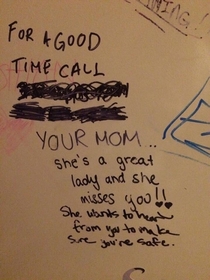 FOR A GOOD
TIME CALL
YOUR MOM..
she's a great
lady and she
misses you!!
She wants to hear
from you to make
sure you're safe.